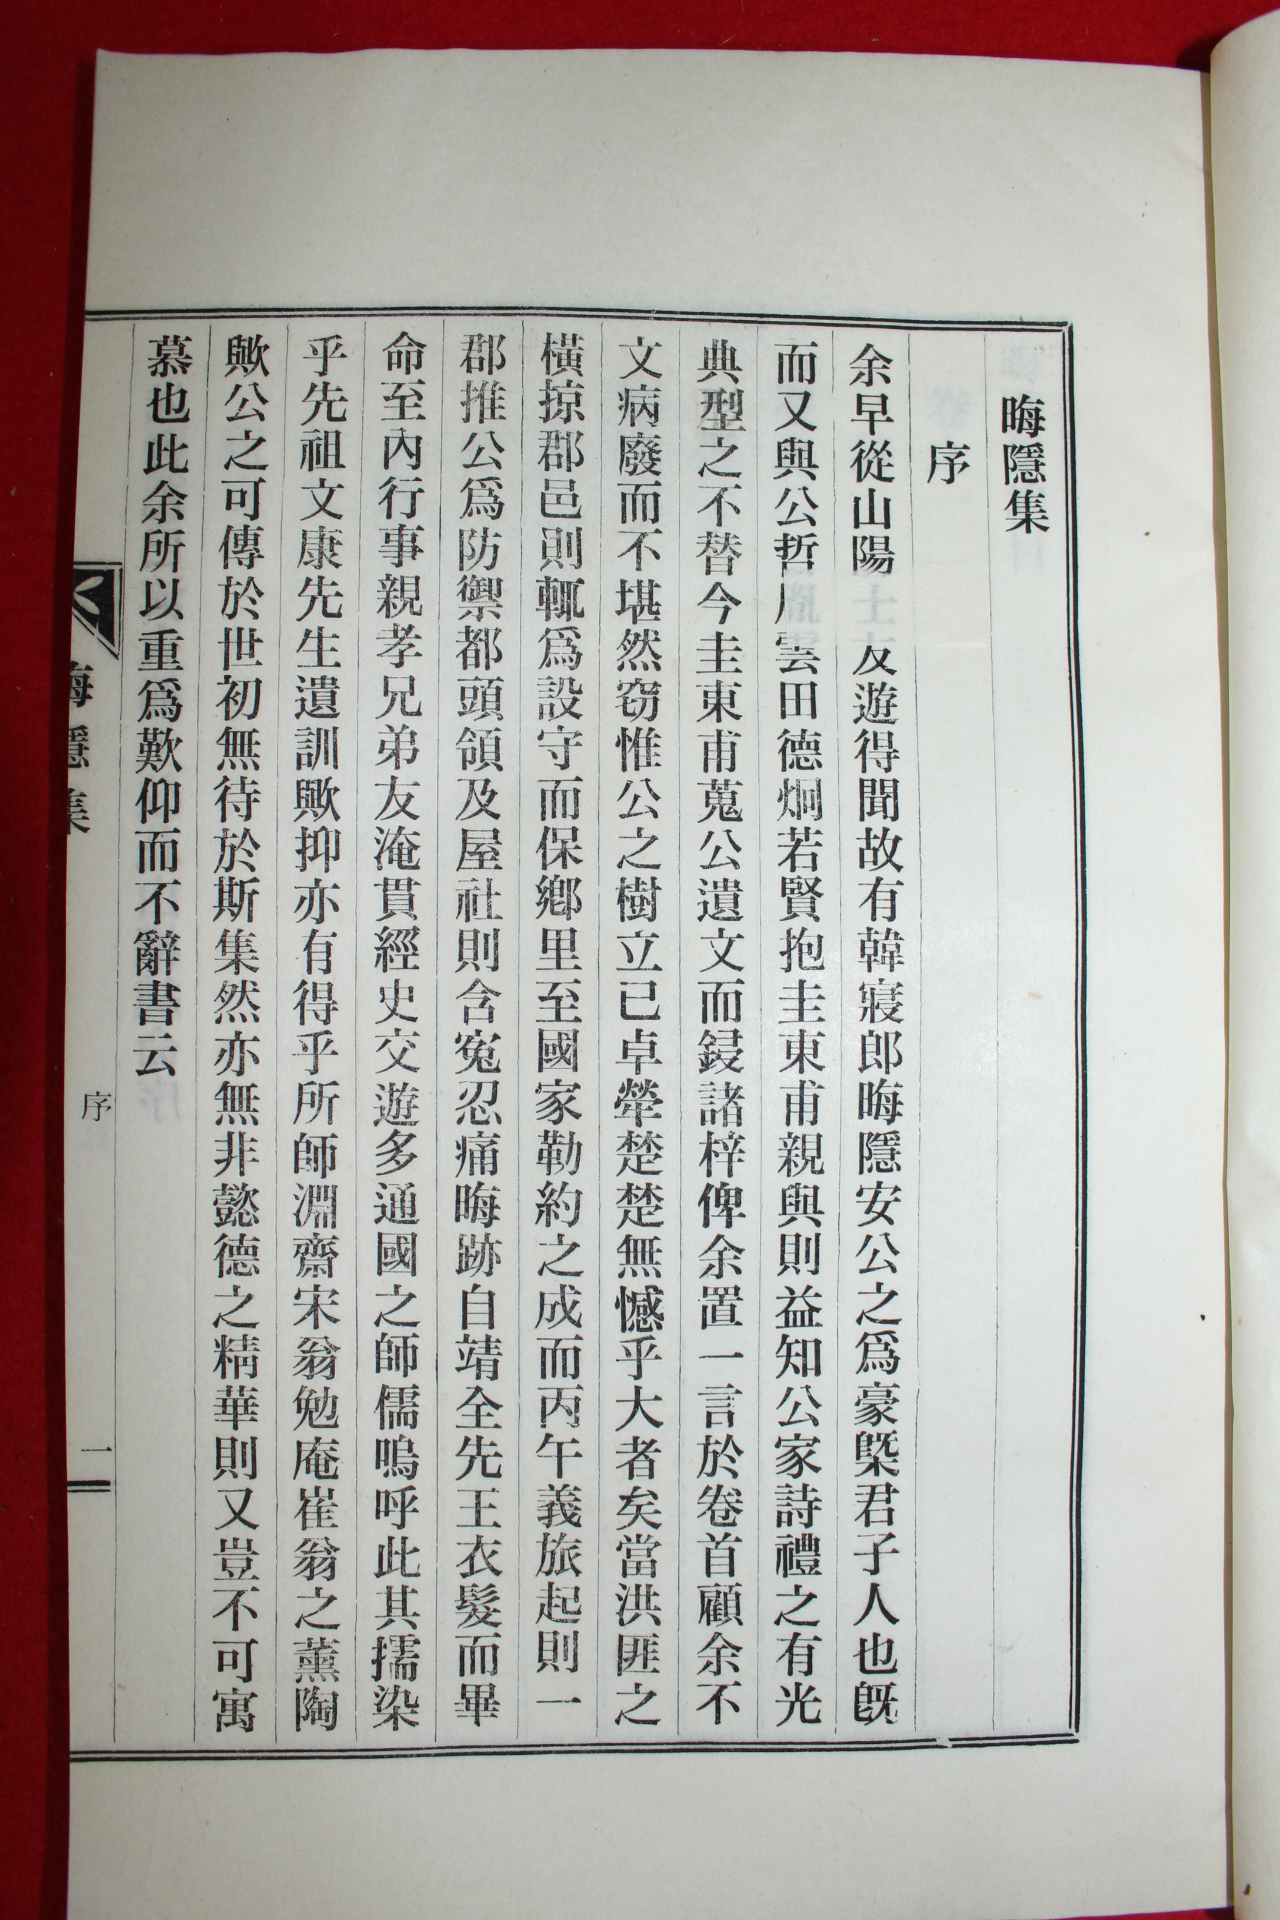 晦隱集
序
余早從山陽士友遊得聞故有韓寢郎晦隱安公之爲豪槩君子人也旣
而又與公哲胤雲田德炯若賢抱圭東甫親與則益知公家詩禮之有光
典型之不替今圭東甫蒐公遺文而鋟諸梓俾余置一言於卷首顧余不
文病廢而不堪然窃惟公之樹立已卓犖楚楚無憾乎大者矣當洪匪之
橫掠郡邑則輒爲設守而保鄕里至國家勒約之成而丙午義旅起則一
郡推公爲防禦都頭領及屋社則含寃忍痛晦跡自靖全先王衣髮而畢
命至內行事親孝兄弟友淹貫經史交遊多通國之師儒嗚呼此其擩染
乎先祖文康先生遺訓歟抑亦有得乎所師淵齋宋翁勉庵崔翁之薰陶
歟公之可傳於世初無待於斯集然亦無非懿德之精華則又豈不可寓
慕也此余所以重爲歎仰而不辭書云
晦隱集 序 一